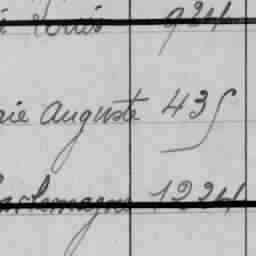 Louis 924
rie Auguste 435
arlemagne 1224